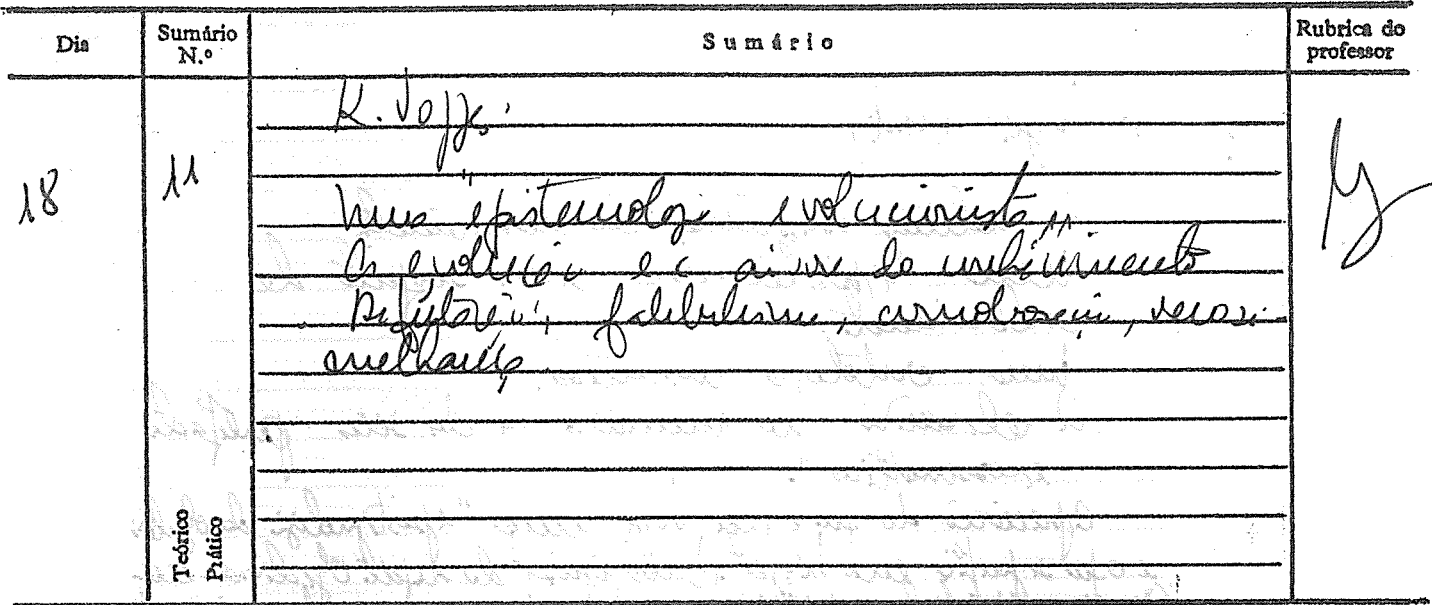 Dia Sumário N.º Sumário Rubrica do professor
K. Popper
18 11
Uma "epistemologia evolucionista"
A evolução e a árvore do conhecimento
Refutação, falibilismo, corroboração, verosi-
melhança
Teórico
Prático